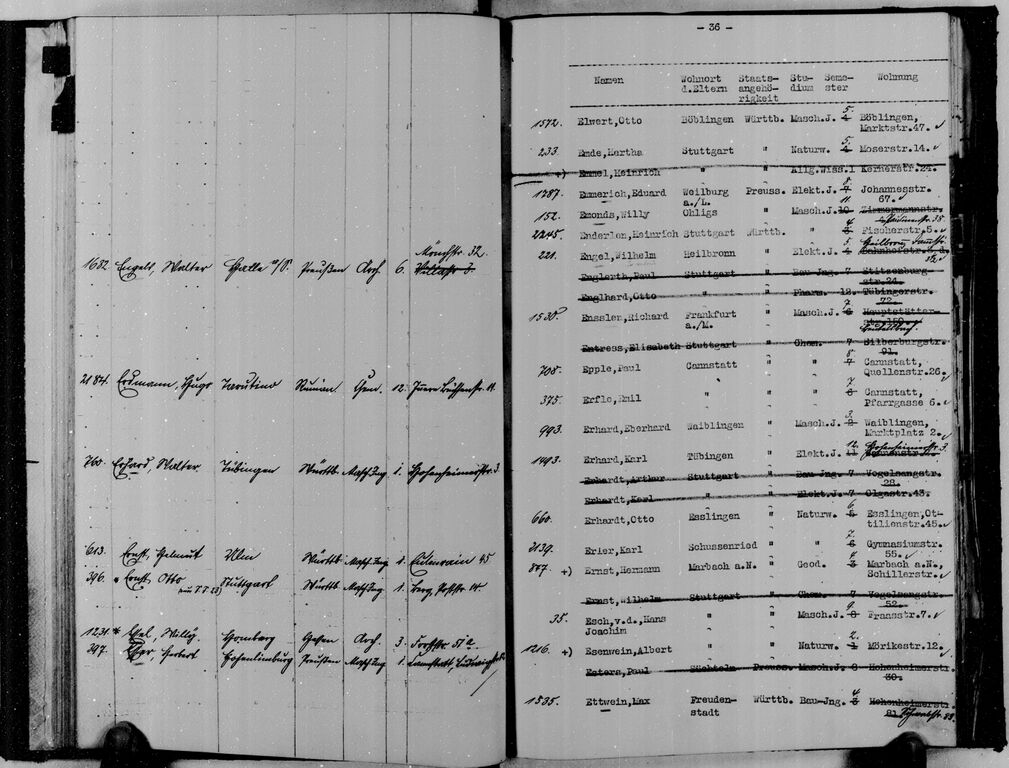 1652. Engels, Walter Halle a/S. Preußen Arch. 6. Mönchstr. 32.
2184. Erdmann, Hugo Tarutino Rumän Gen. 12.
760. Erhard, Walter Tübingen Württb. Masch.Ing 1. Hohenheimerstr. 3.
613. Ernst, Helmut Ulm Württb. Masch.Ing 1. Eulenrain 45
396. Ernst, Otto Stuttgart Württb. Masch.Ing 1. Berg, Poststr. 14.
1231. Etzel, Willy Homberg Hessen Arch. 3. Forststr. 51a
397. Herbert Hohenlimburg Preußen Masch.Ing 1. Cannstatt,
- 36 -
Namen Wohnort Staats- Stu- Semes- Wohnung
d.Eltern angehö- dium ster
rigkeit
5.
1572. Elwert, Otto Böblingen Württb. Masch.J. 4 Böblingen,
Marktstr.47.
5.
233. Ende, Hertha Stuttgart " Naturw. 4 Moserstr.14.
+) Emmel, Heinrich " " Allg.Wiss.1 Kernerstr.24.
8.
1287. Emmerich, Eduard Weilburg Preuss. Elekt.J. 7 Johannesstr.
a./L. 67.
11.
152. Emonds, Willy Ohligs " Masch.J. 10 Zimmermannstr.
4
2245. Enderlen, Heinrich Stuttgart Württb. " 3 Fischerstr.5.
5.
221. Engel, Wilhelm Heilbronn " Elekt.J. 4 Bahnhofstr.
Englerth, Paul Stuttgart " Bau-Jng. 7 Stitzenburg-
str.24.
Englhard, Otto " " Pharm. 12. Tübingerstr.
72.
7
1530. Ensslen, Richard Frankfurt " Masch.J. 6 Hauptstätter-
a./M. str.150.
Entress, Elisabeth Stuttgart " Chem. 7 Silberburgstr.
91.
8
708. Epple, Paul Cannstatt " " 7 Cannstatt,
Quellenstr.26.
7
375. Erfle, Emil " " " 6 Cannstatt,
Pfarrgasse 6.
3.
993. Erhard, Eberhard Waiblingen " Masch.J. 2 Waiblingen,
Marktplatz 2.
12. Hohenheimerstr. 3.
1493. Erhard, Karl Tübingen " Elekt.J. 11
Erhardt, Arthur Stuttgart " Bau-Jng. 7 Vogelsangstr.
28.
Erhardt, Karl " " Elekt.J. 7 Olgastr.43.
6
660. Erhardt, Otto Esslingen " Naturw. 5 Esslingen, Ot-
tilienstr.45.
7
2139. Erler, Karl Schussenried " " 6 Gymnasiumstr.
55.
4
877 +) Ernst, Hermann Marbach a.N. " Geod. 3 Marbach a.N.,
Schillerstr.
Ernst, Wilhelm Stuttgart " Chem. 7 Vogelsangstr.
52.
9
35. Esch, v.d., Hans " " Masch.J. 8 Fransstr.7.
Joachim
2.
1216. +) Esenwein, Albert " " Naturw. 1 Mörikestr.12.
Esters, Paul Süchteln Preuss. Masch.J. 8 Hohenheimerstr.
30.
4
1535. Ettwein, Max Freuden- Württb. Bau-Jng. 3 Hohenheimerstr.
stadt 81